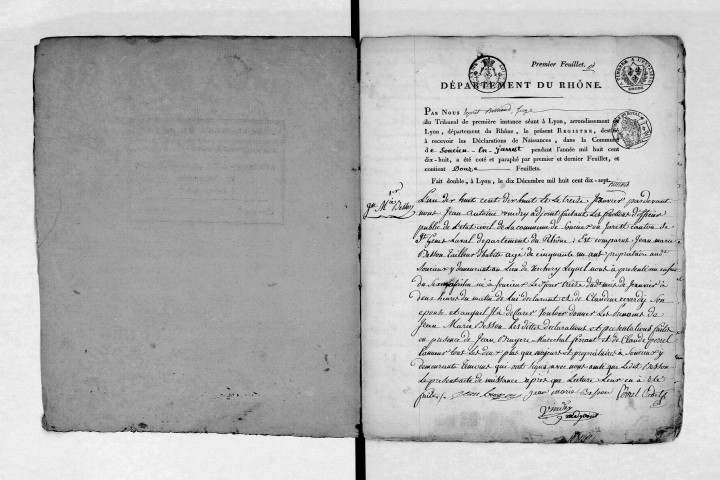 Premier Feuillet.
DÉPARTEMENT DU RHÔNE.
PAR NOUS juge
du Tribunal de première instance séant à Lyon, arrondissement
Lyon, département du Rhône, le présent REGISTRE, destiné
à recevoir les Déclarations de Naissances, dans la Commune
de Soucieu-en-Jarrest pendant l'année mil huit cent
dix-huit, a été coté et paraphé par premier et dernier Feuillet, et
contient Douze Feuillets.
Fait double, à Lyon, le dix Décembre mil huit cent dix-sept.
L'an dix huit cent dix huit et le treize janvier pardevant
nous Jean Antoine adjoint faisant les fonctions d'officier
public de l'état civil de la commune de Soucieu en Jarest canton de
St Genis Laval département du Rhône; Est comparu Jean marie
Besson tailleur d'habits agé de cinquante un ans propriétaire
Soucieu y demeurant au Lieu de Lequel nous a présenté un enfant
du sexe né à Soucieu Le jour treize mois de janvier à
deux heures du matin de Lui déclarant et de Claudine son
epouse et auquel il a déclaré vouloir donner Les prenoms de
Jean Marie Besson. Les dittes déclarations et présentations faites
en présence de Jean Bruyere Marechal ferrant et de Claude
tous Les deux plus que majeurs et propriétaires à Soucieu y
demeurant temoins qui ont signé avec nous ainsi que Ledit Besson
Le présent acte de naissance après que Lecture Leur en a été
faite. jean marie Besson